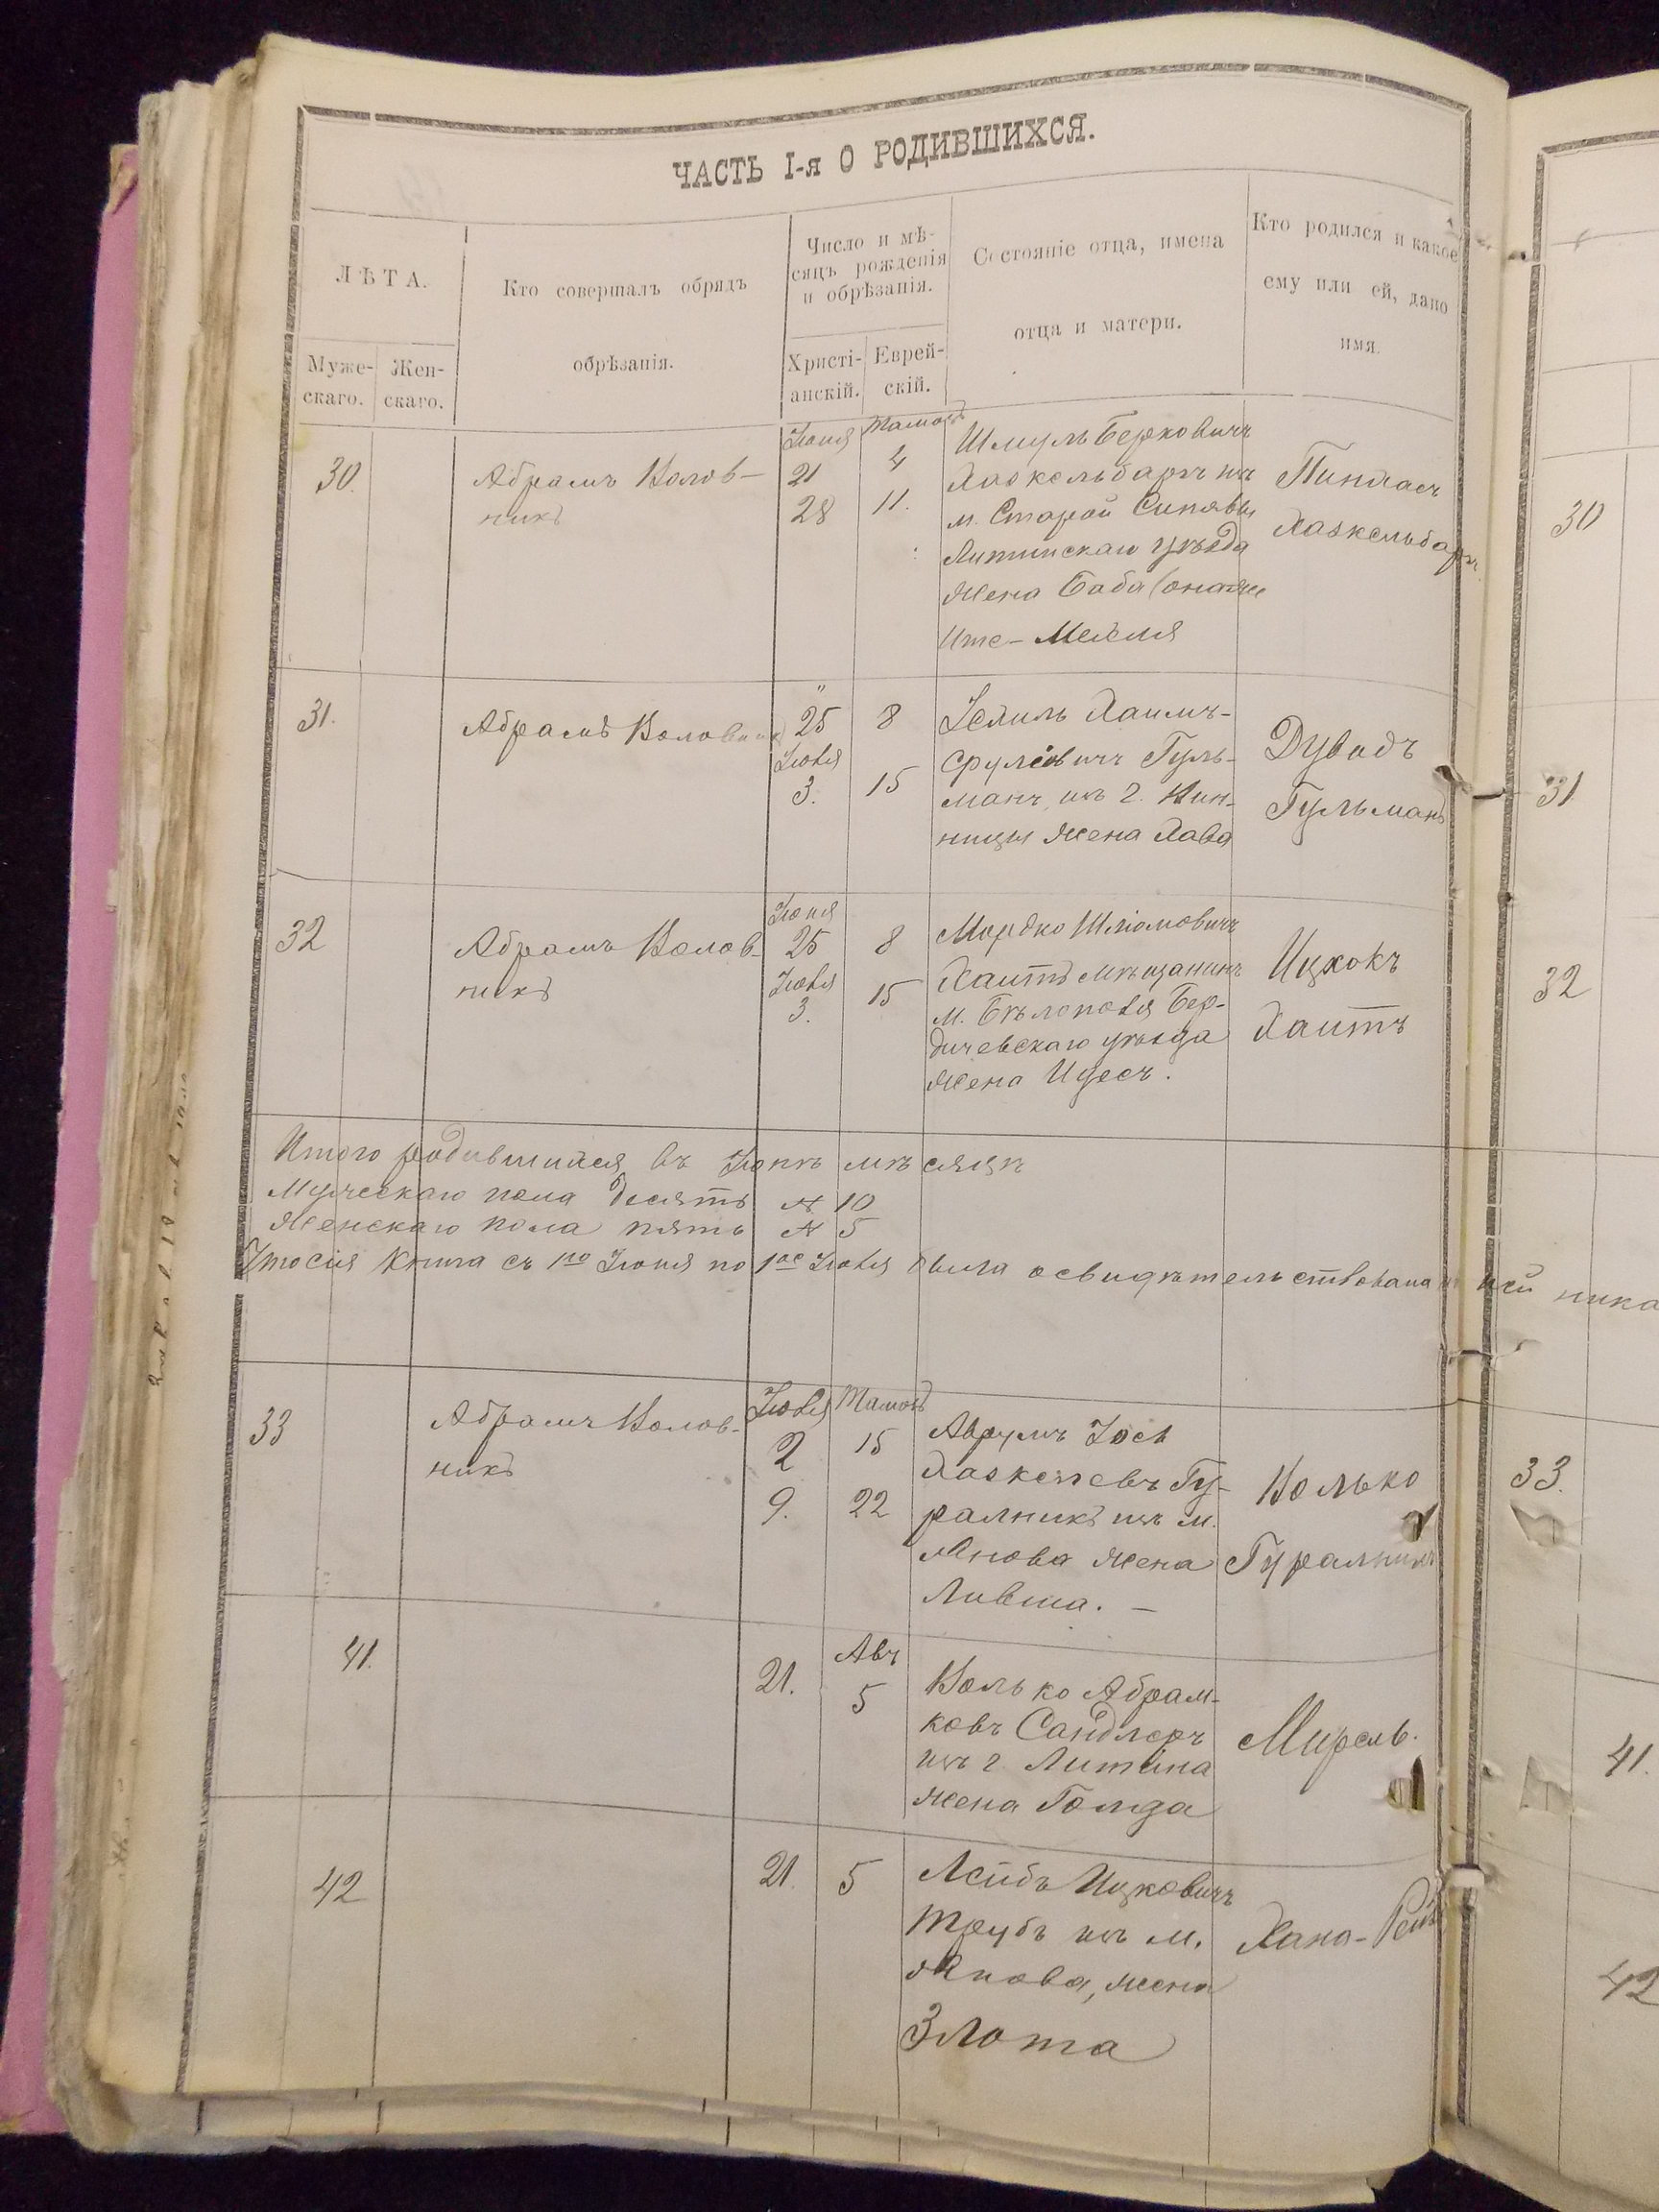 ЧАСТЬ I-я О РОДИВШИХСЯ.
ЛѢТА.
Муже-
скаго.
Жен-
скаго.
Кто совершалъ обрядъ
обрѣзанія.
Число и мѣ-
сяцъ рожденія
и обрѣзанія.
Христі-
анскій.
Еврей-
скій.
Состояніе отца, имена
отца и матери.
Кто родился и какое
ему или ей, дано
имя.
30.
Абрамъ Волов-
никъ
Іюня
21
28
Тамозъ
4
11.
Шмуль Берковичъ
Хаскельбаргъ изъ
м. Старой Синявы
Литинскаго уѣзда
жена Баба (онаже
Ите-
Пинхасъ
Хаскельбаргъ
30
31.
Абрамъ Воловникъ
"
25
Іюля
3.
8
15
Хаимъ-
Срулевичъ Гуль-
манъ изъ г. Вин-
ницы жена Хава
Дувидъ
Гульманъ
31
32
Абрамъ Волов-
никъ
Іюня
25
Іюля
3.
8
15
Мордко Шліомовичъ
Хаитъ мѣщанинъ
м. Бѣлополя Бер-
дичевскаго уѣзда
жена Идесъ.
Ицхокъ
Хаитъ
32
Итого родившихся въ Іюнѣ мѣсяцѣ
Мужескаго пола десять № 10
Женскаго пола пять № 5
Что сія книга съ 1го Іюня по 1ое Іюля была освидѣтельствована и ней ника
33
Абрамъ Волов-
никъ
Іюля
2
9.
Тамозъ
15
22
Аврумъ Іось
Хаскелевъ Гу-
ралникъ изъ м.
Янова жена
Ливша. —
Волько
Гуралникъ
33.
41.
21.
Авъ
5
Волько Абрам-
ковъ Сандлеръ
изъ г Литина
жена Голда
Мирель.
41.
42
21.
5
Лейбъ Ицковичъ
Трубъ изъ м.
Янова, жена
Злота
Хана-
42